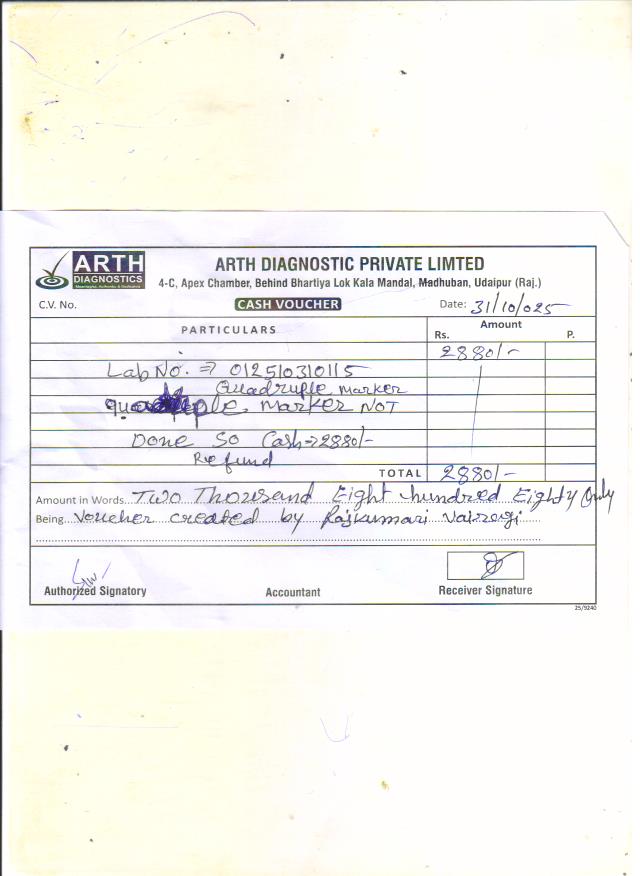 ARTH
DIAGNOSTICS
ARTH DIAGNOSTIC PRIVATE LIMTED
4-C, Apex Chamber, Behind Bhartiya Lok Kala Mandal, Madhuban, Udaipur (Raj.)
C.V. No. CASH VOUCHER Date: 31/10/025
PARTICULARS Amount
Rs. P.
2880/-
Lab No. ⇒ 012510310115
Quadruple marker
marker NOT
Done So Cash⇒2880/-
Refund
TOTAL 2880/-
Amount in Words Two Thousand Eight hundred Eighty Only
Being Voucher created by Rajkumari Vairagi
Authorized Signatory Accountant Receiver Signature
25/9240